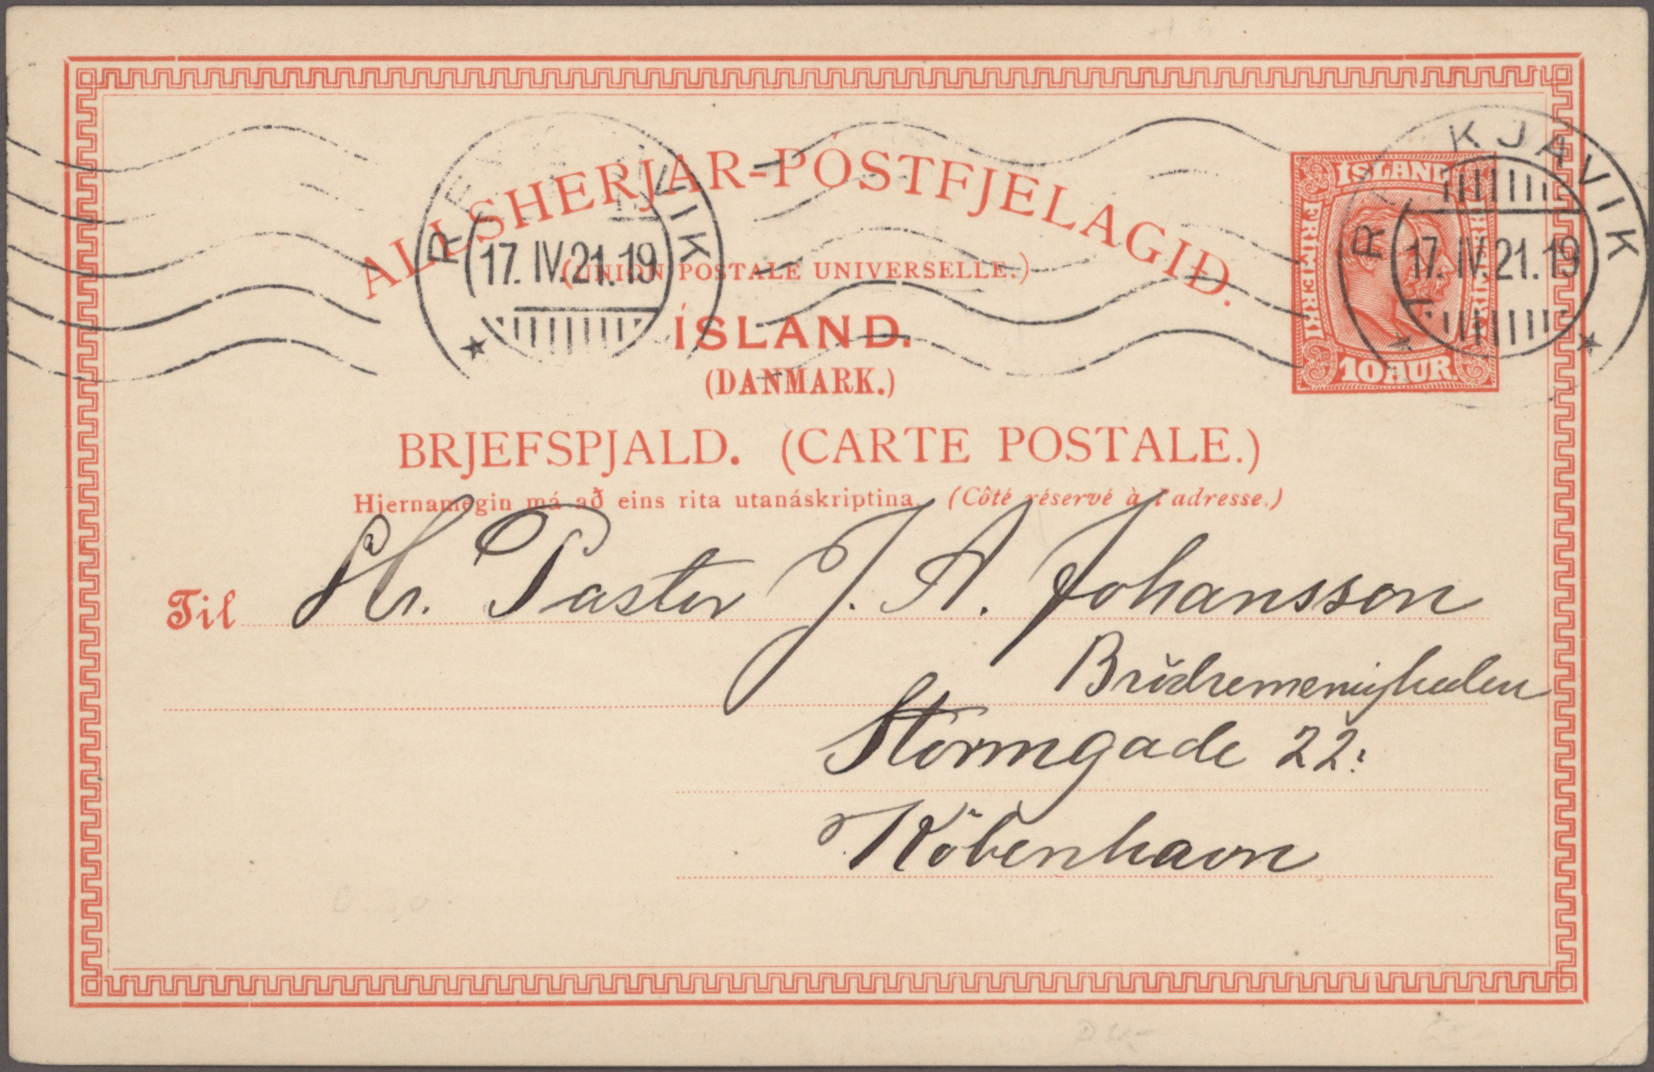 ALLSHERJAR-PÓSTFJELAGIÐ.
(UNION POSTALE UNIVERSELLE.)
ÍSLAND.
(DANMARK.)
BRJEFSPJALD. (CARTE POSTALE.)
Hjernamegin má að eins rita utanáskriptina. (Côté réservé à l'adresse.)
REYKJAVIK
17.IV.21.19
ÍSLAND
FRIMERKI
BRJEFSPJALD
10 AUR.
REYKJAVIK
17.IV.21.19
Til Hr. Pastor J. A. Johansson
Brödremenigheden
Stormgade 22.
Köbenhavn